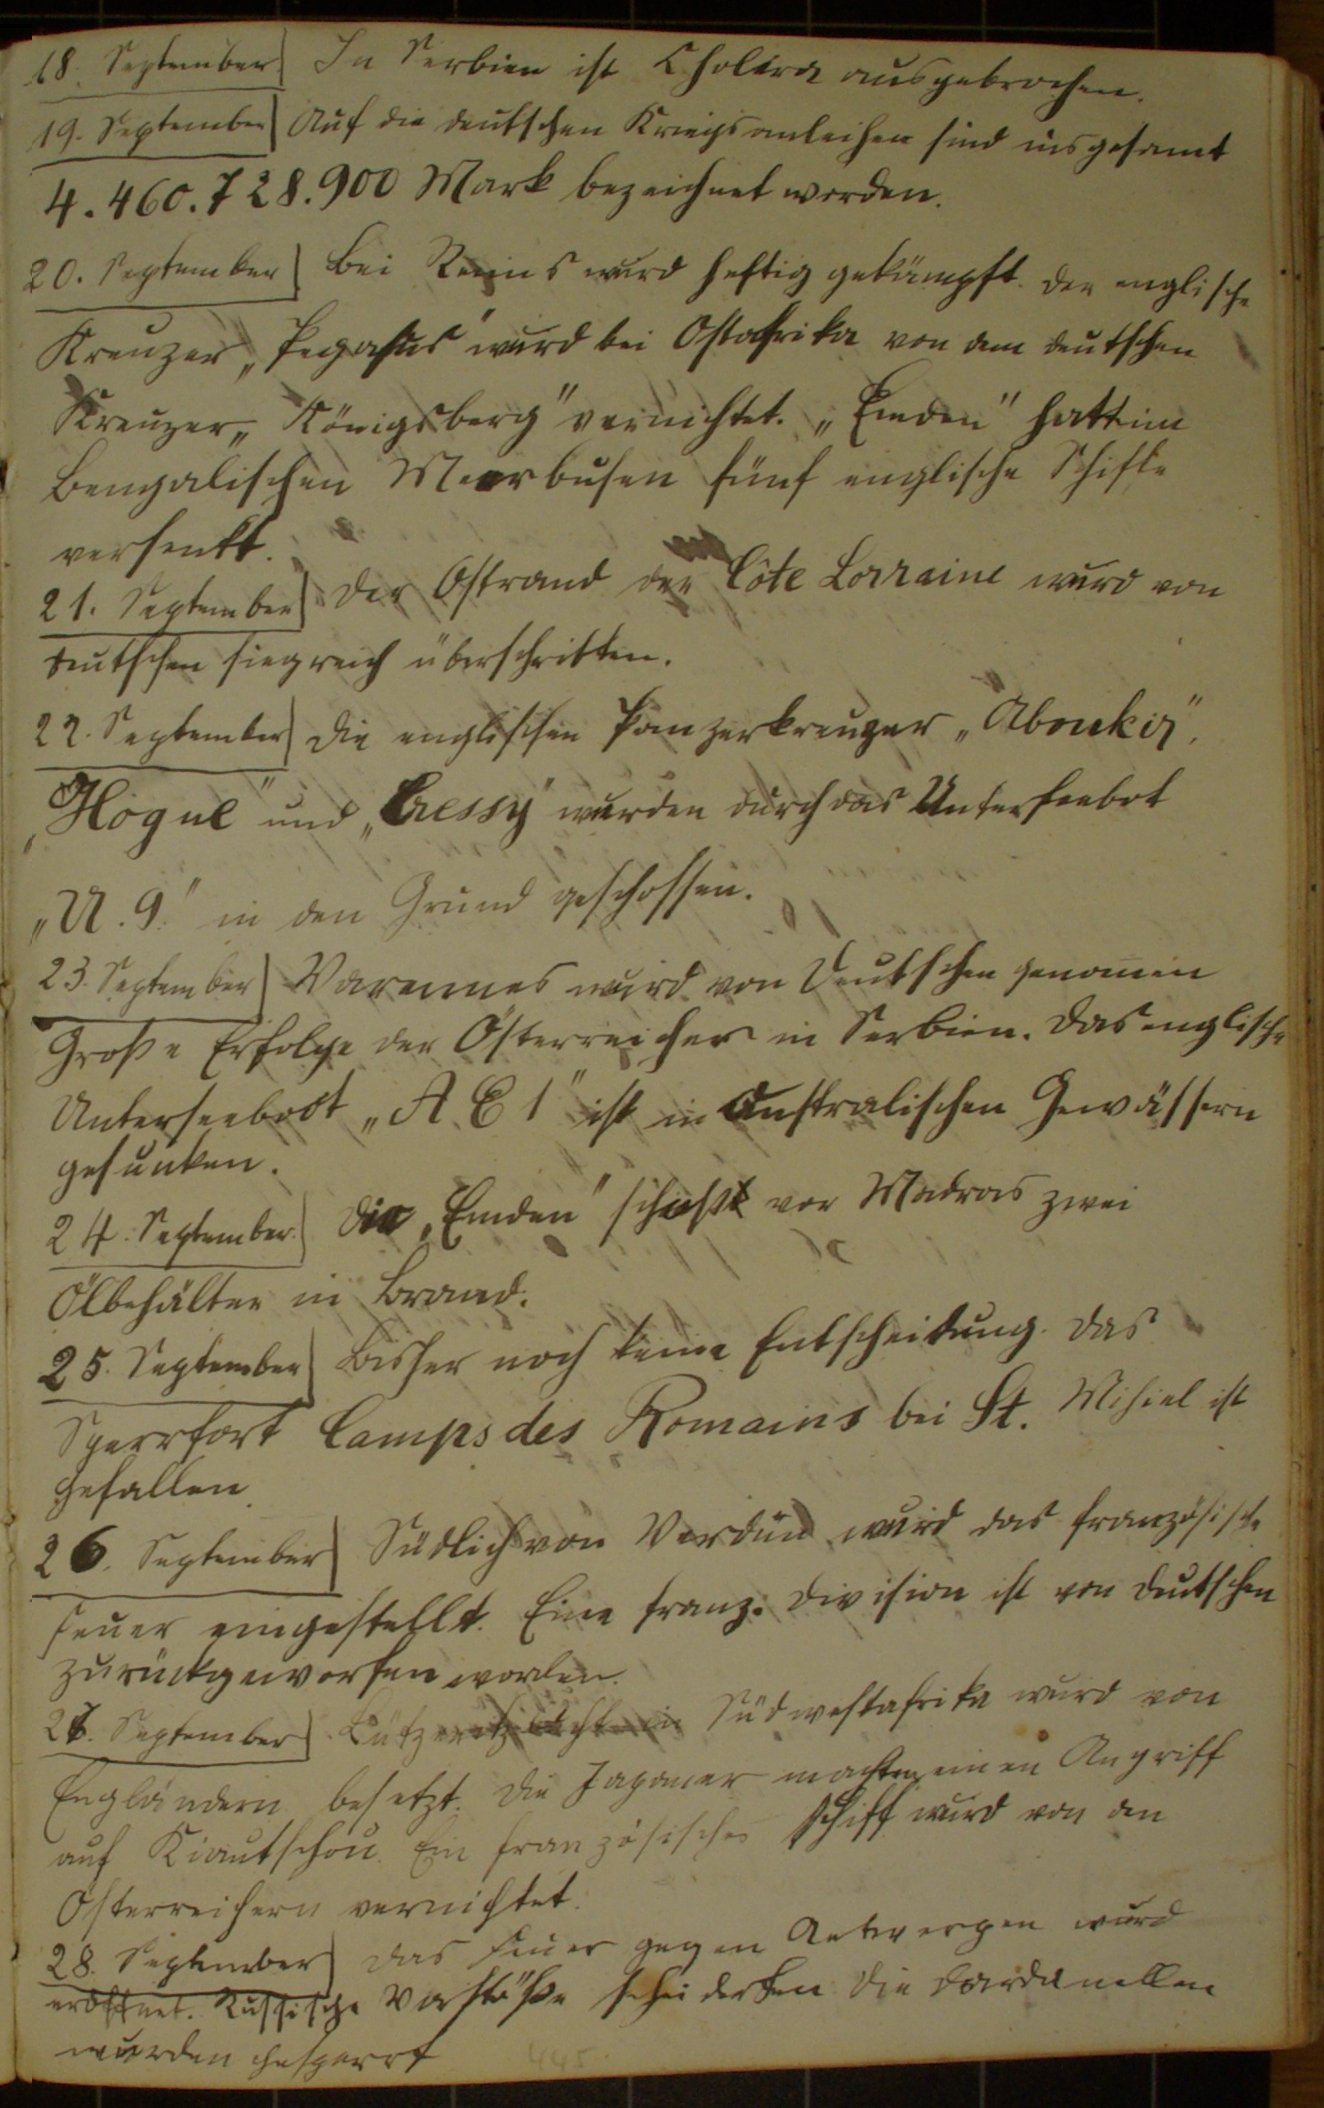 18. September In Serbien ist Cholera ausgebrochen.
19. September Auf die deutschen Kriegsanleihen sind insgesamt
4.460.728.900 Mark bezeichnet worden.
20. September Bei Reims wird heftig gekämpft. Der englische
Kreuzer „Pegasus" wird bei Ostafrika von dem deutschen
Kreuzer „Königsberg" vernichtet. „Emden" hatt im
Bengalischen Meerbusen fünf englische Schiffe
versenkt.
21. September Der Ostrand der Côte Lorraine wird von
Deutschen siegreich überschritten.
22. September Die englischen Panzerkreuzer „Aboukir",
„Hogue" und „Cressy" wurden durch das Unterseebot
„U. 9." in den Grund geschossen.
23. September Varennes wird von Deutschen genomen
Große Erfolge der Österreicher in Serbien. Das englische
Unterseeboot „A E 1" ist in Australischen Gewässern
gesunken.
24. September Die „Emden" schoßt vor Madras zwei
Ölbehälter in Brand.
25. September Bisher noch keine Entscheidung. Das
Sperrfort Camps des Romains bei St. Mihiel ist
gefallen.
26. September Südlich von Verdun wird das französische
Feuer eingestellt. Eine franz. Division ist von Deutschen
zurückgeworfen worden.
September Südwestafrika wird von
Engländern besetzt. Die Japaner machten einen Angriff
auf Kiautschou. Ein französisches Schiff wird von den
Österreichern vernichtet.
28. September Das Feuer gegen Antwerpen wird
eröffnet. Russische Vorstöße scheiderten die Dardanellen
wurden gesperrt
445.